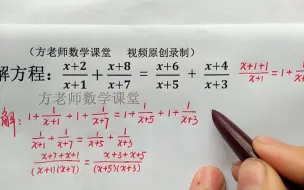 (方老师数学课堂 视频原创录制)
解方程: (x+2)/(x+1) + (x+8)/(x+7) = (x+6)/(x+5) + (x+4)/(x+3)
(x+1+1)/(x+1) = 1 + 1/(x+1)
方老师数学课堂
解: 1 + 1/(x+1) + 1 + 1/(x+7) = 1 + 1/(x+5) + 1 + 1/(x+3)
1/(x+1) + 1/(x+7) = 1/(x+5) + 1/(x+3)
(x+7+x+1)/((x+1)(x+7)) = (x+3+x+5)/((x+5)(x+3))